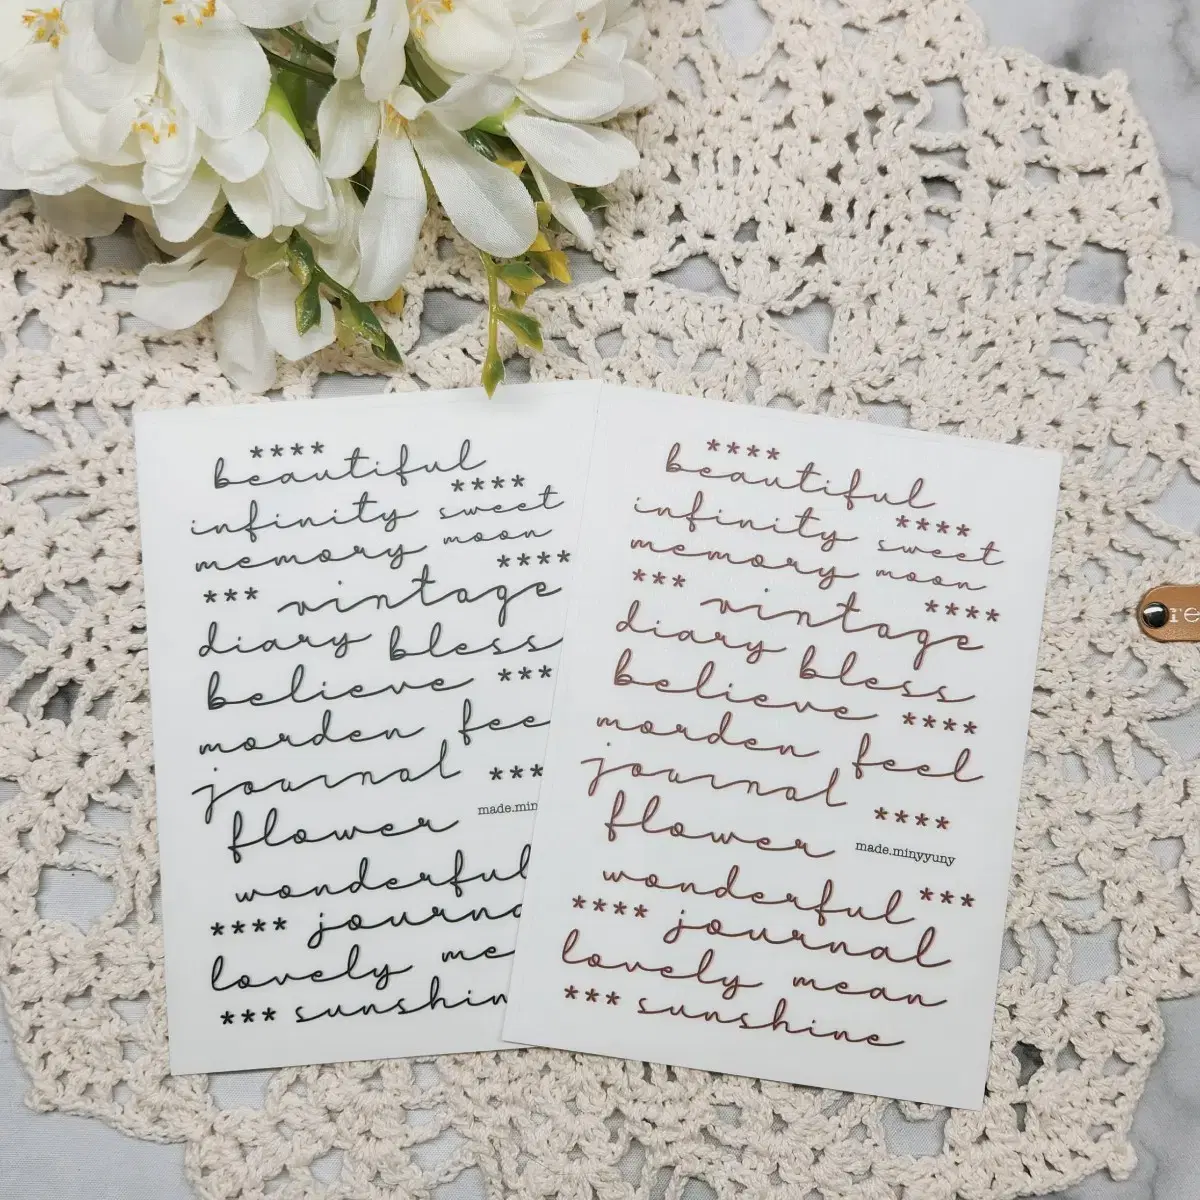 ****
beautiful
****
infinity sweet
memory moon
****
*** vintage
diary bless
believe ***
morden fee
journal ***
made.min
flower
wonderful
**** journa
lovely me
*** sunshin
****
beautiful
****
infinity sweet
memory moon
*** ****
vintage
diary bless
believe ****
morden feel
journal ****
flower made.minyyuny
wonderful ***
**** journal
lovely mean
*** sunshine
re